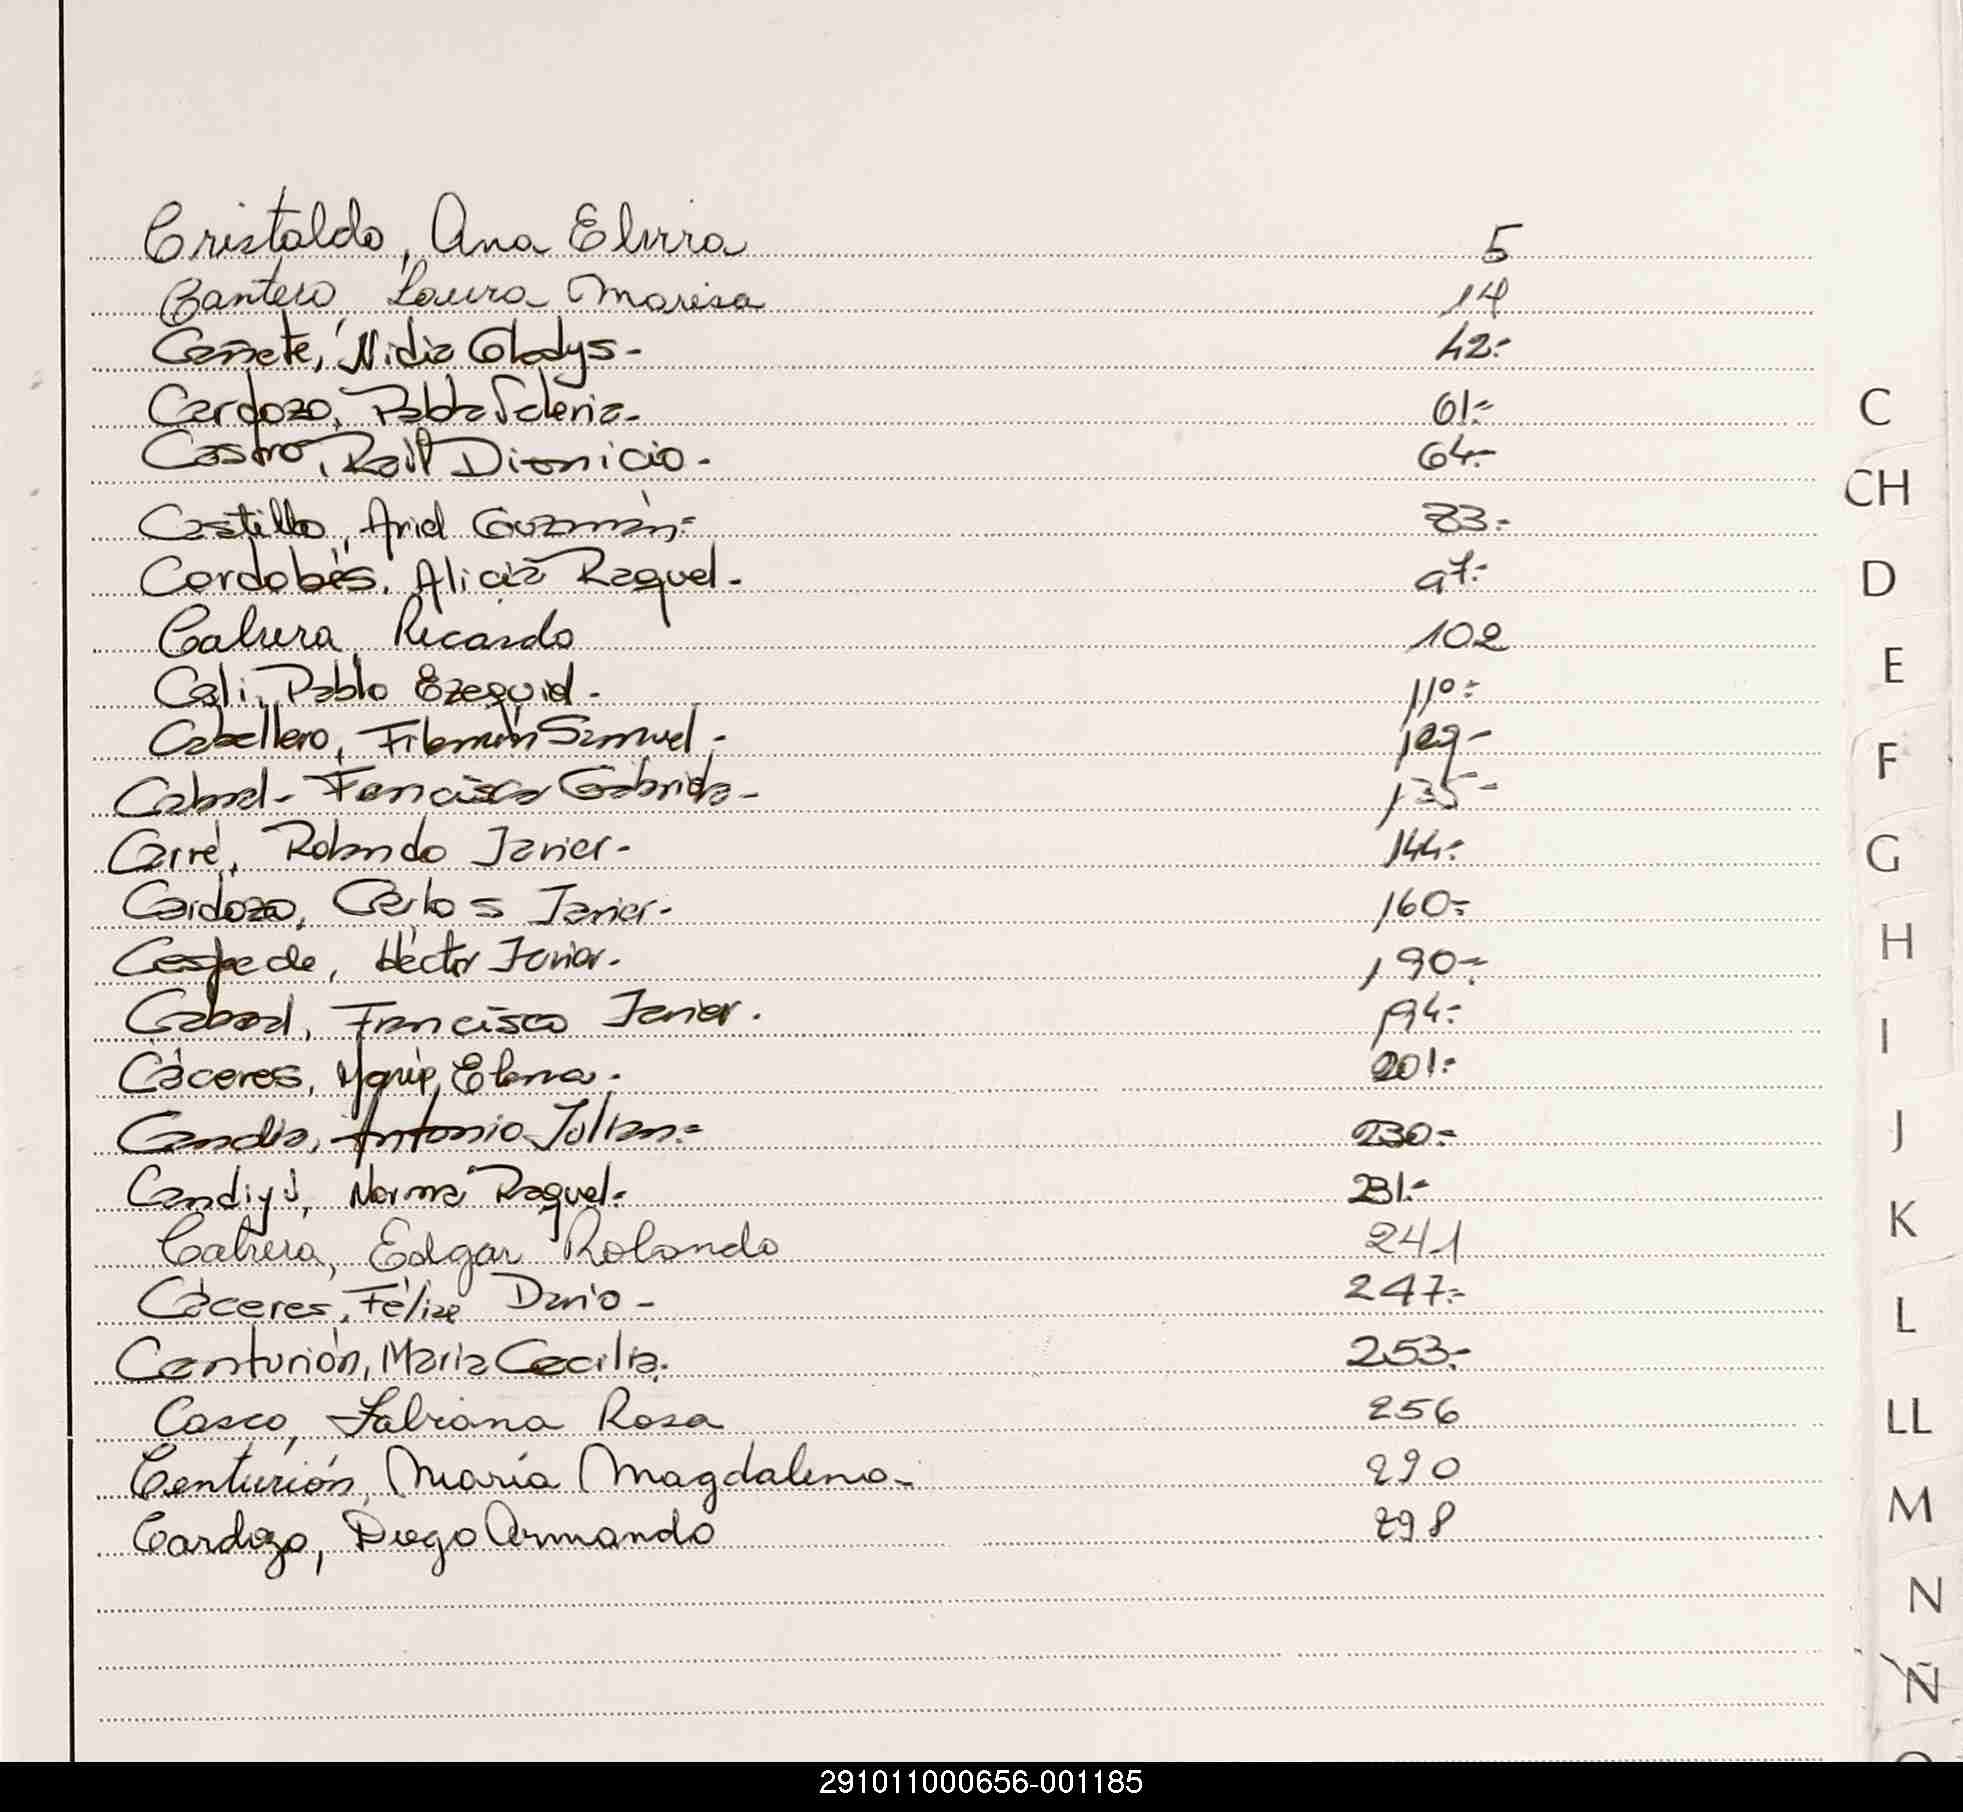 Cristaldo, Ana Elvira 5
Cantero, Laura Marisa 14
Cañete, Nidia Gladys.- 42.-
Cardozo, Pabla Valeria.- 61.-
Castro, Raúl Dionicio.- 64.-
Castillo, Ariel Guzmán.- 83.-
Cordobés, Alicia Raquel.- 97.-
Cabrera, Ricardo 102
Cali, Pablo Ezequiel.- 110.-
Caballero, Filemón Samuel.- 129.-
Cabral- Francisca Gabriela- 135-
Carré, Rolando Javier.- 144.-
Cardozo, Carlos Javier.- 160.-
Cespede, Héctor Javier.- 190.-
Cabral, Francisco Javier. 194.-
Cáceres, María Elena.- 201.-
Candia, Antonio Julian.- 230.-
Candiyú, Norma Raquel.- 231.-
Cabrera, Edgar Rolando 241
Cáceres, Félix Darío- 247.-
Centurión, María Cecilia. 253.-
Casco, Fabiana Rosa 256
Centurión, María Magdalena- 290
Cardozo, Diego Armando 298
C
CH
D
E
F
G
H
I
J
K
L
LL
M
N
Ñ
291011000656-001185